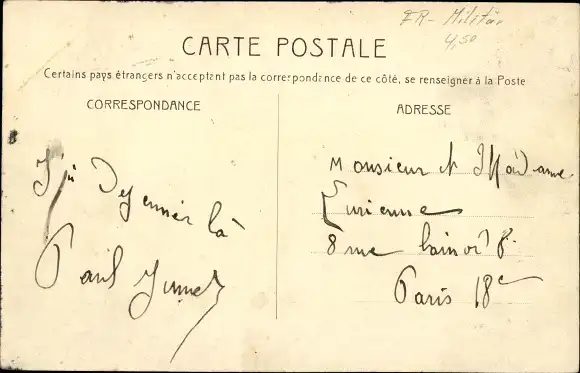 FR - Militär
4,50
CARTE POSTALE
Certains pays étrangers n'acceptent pas la correspondance de ce côté, se renseigner à la Poste
CORRESPONDANCE
ADRESSE
J'ai Dejenner là
Paul
Monsieur et Madame
8 rue
Paris 18e